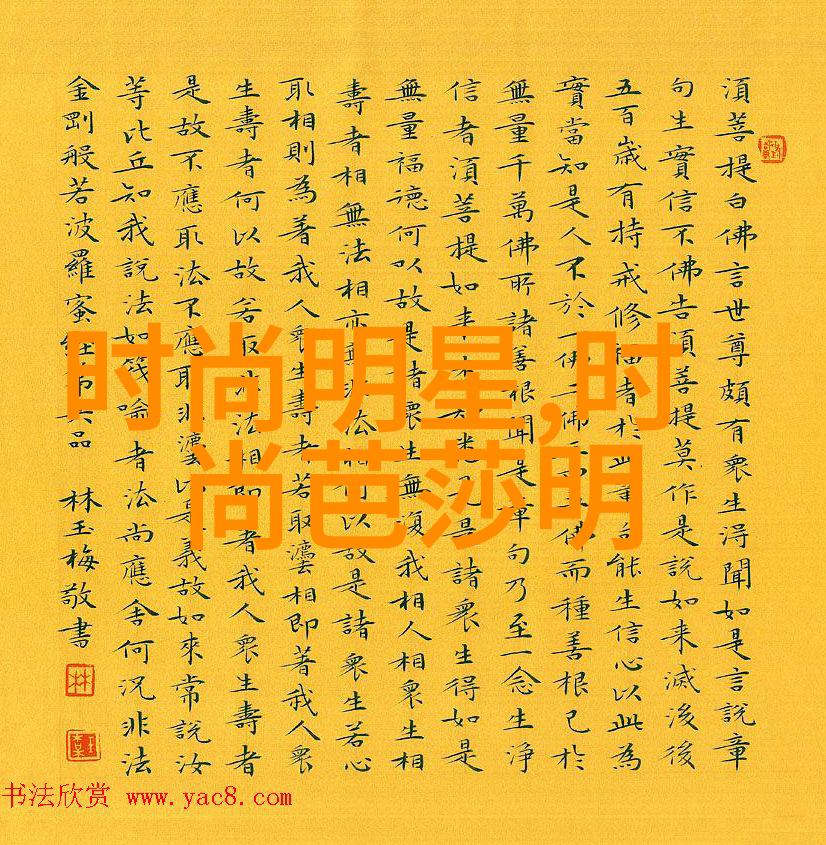 須菩提白佛言世尊頗有衆生淂聞如是言說章
句生實信不佛告須菩提莫作是說如来滅後後
五百歲有持戒修福者於此章句能生信心以此為
實當知是人不於一佛二佛三四五佛而種善根已於
無量千萬佛所諸善根聞是章句乃至一念生淨
信者須菩提如来悉知悉見是諸衆生得如是
無量福德何以故是諸衆生無復我相人相衆生相
壽者相無法相亦無非法相何以故是諸衆生若心
取相則為著我人衆生壽者若取灋相即著我人衆
生壽者何以故若取非法相即著我人衆生壽者
是故不應取法不應取非灋以是義故如來常說汝
等比丘知我說法如筏喻者法尚應舍何況非法
金剛般若波羅蜜經第六品 林玉梅敬書
林
时尚明星,时
尚芭莎明
书法欣赏 www.yac8.com